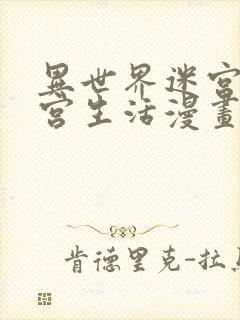 異世界迷宮
宮生活漫畫
肯德里克-拉